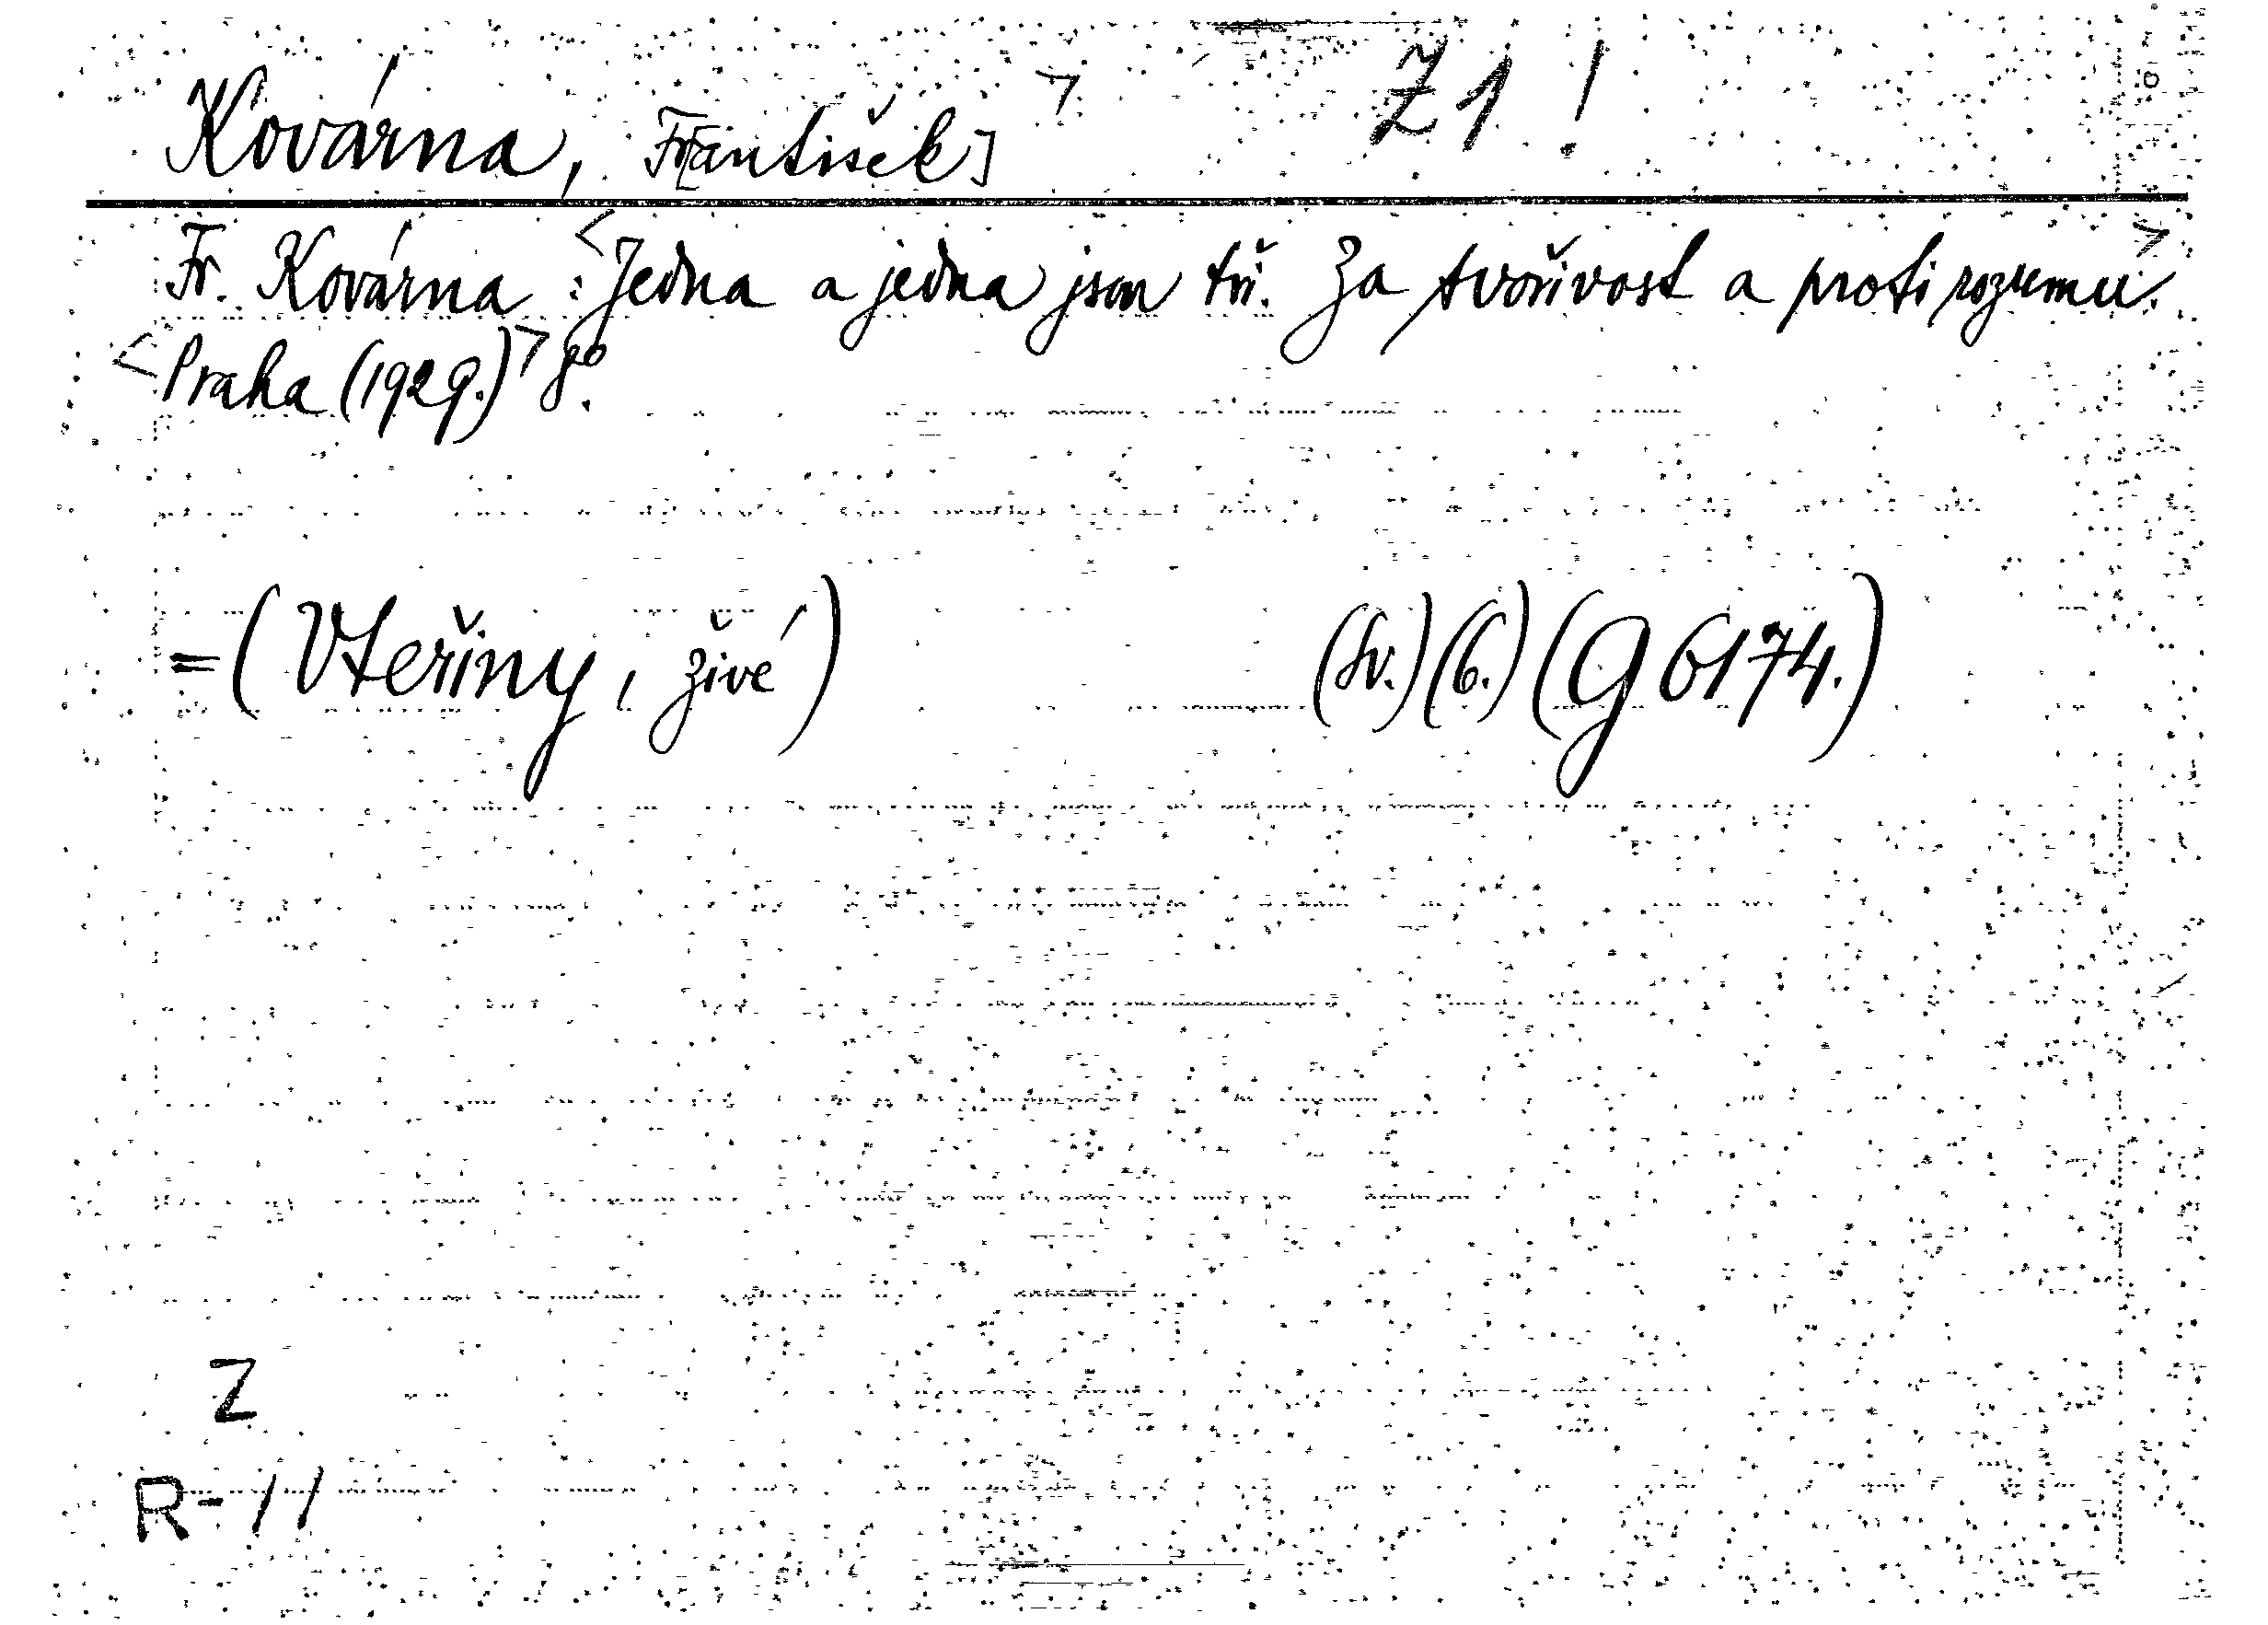 Kovárna, Fr[antišek] > Z 1 !
Fr. Kovárna : <Jedna a jedna jsou tři. Za tvořivost a proti rozumu.>
<Praha (1929.)> 8º.
= (Vteřiny, živé) (Sv.) (6.) (G 6174.)
Z
R-11